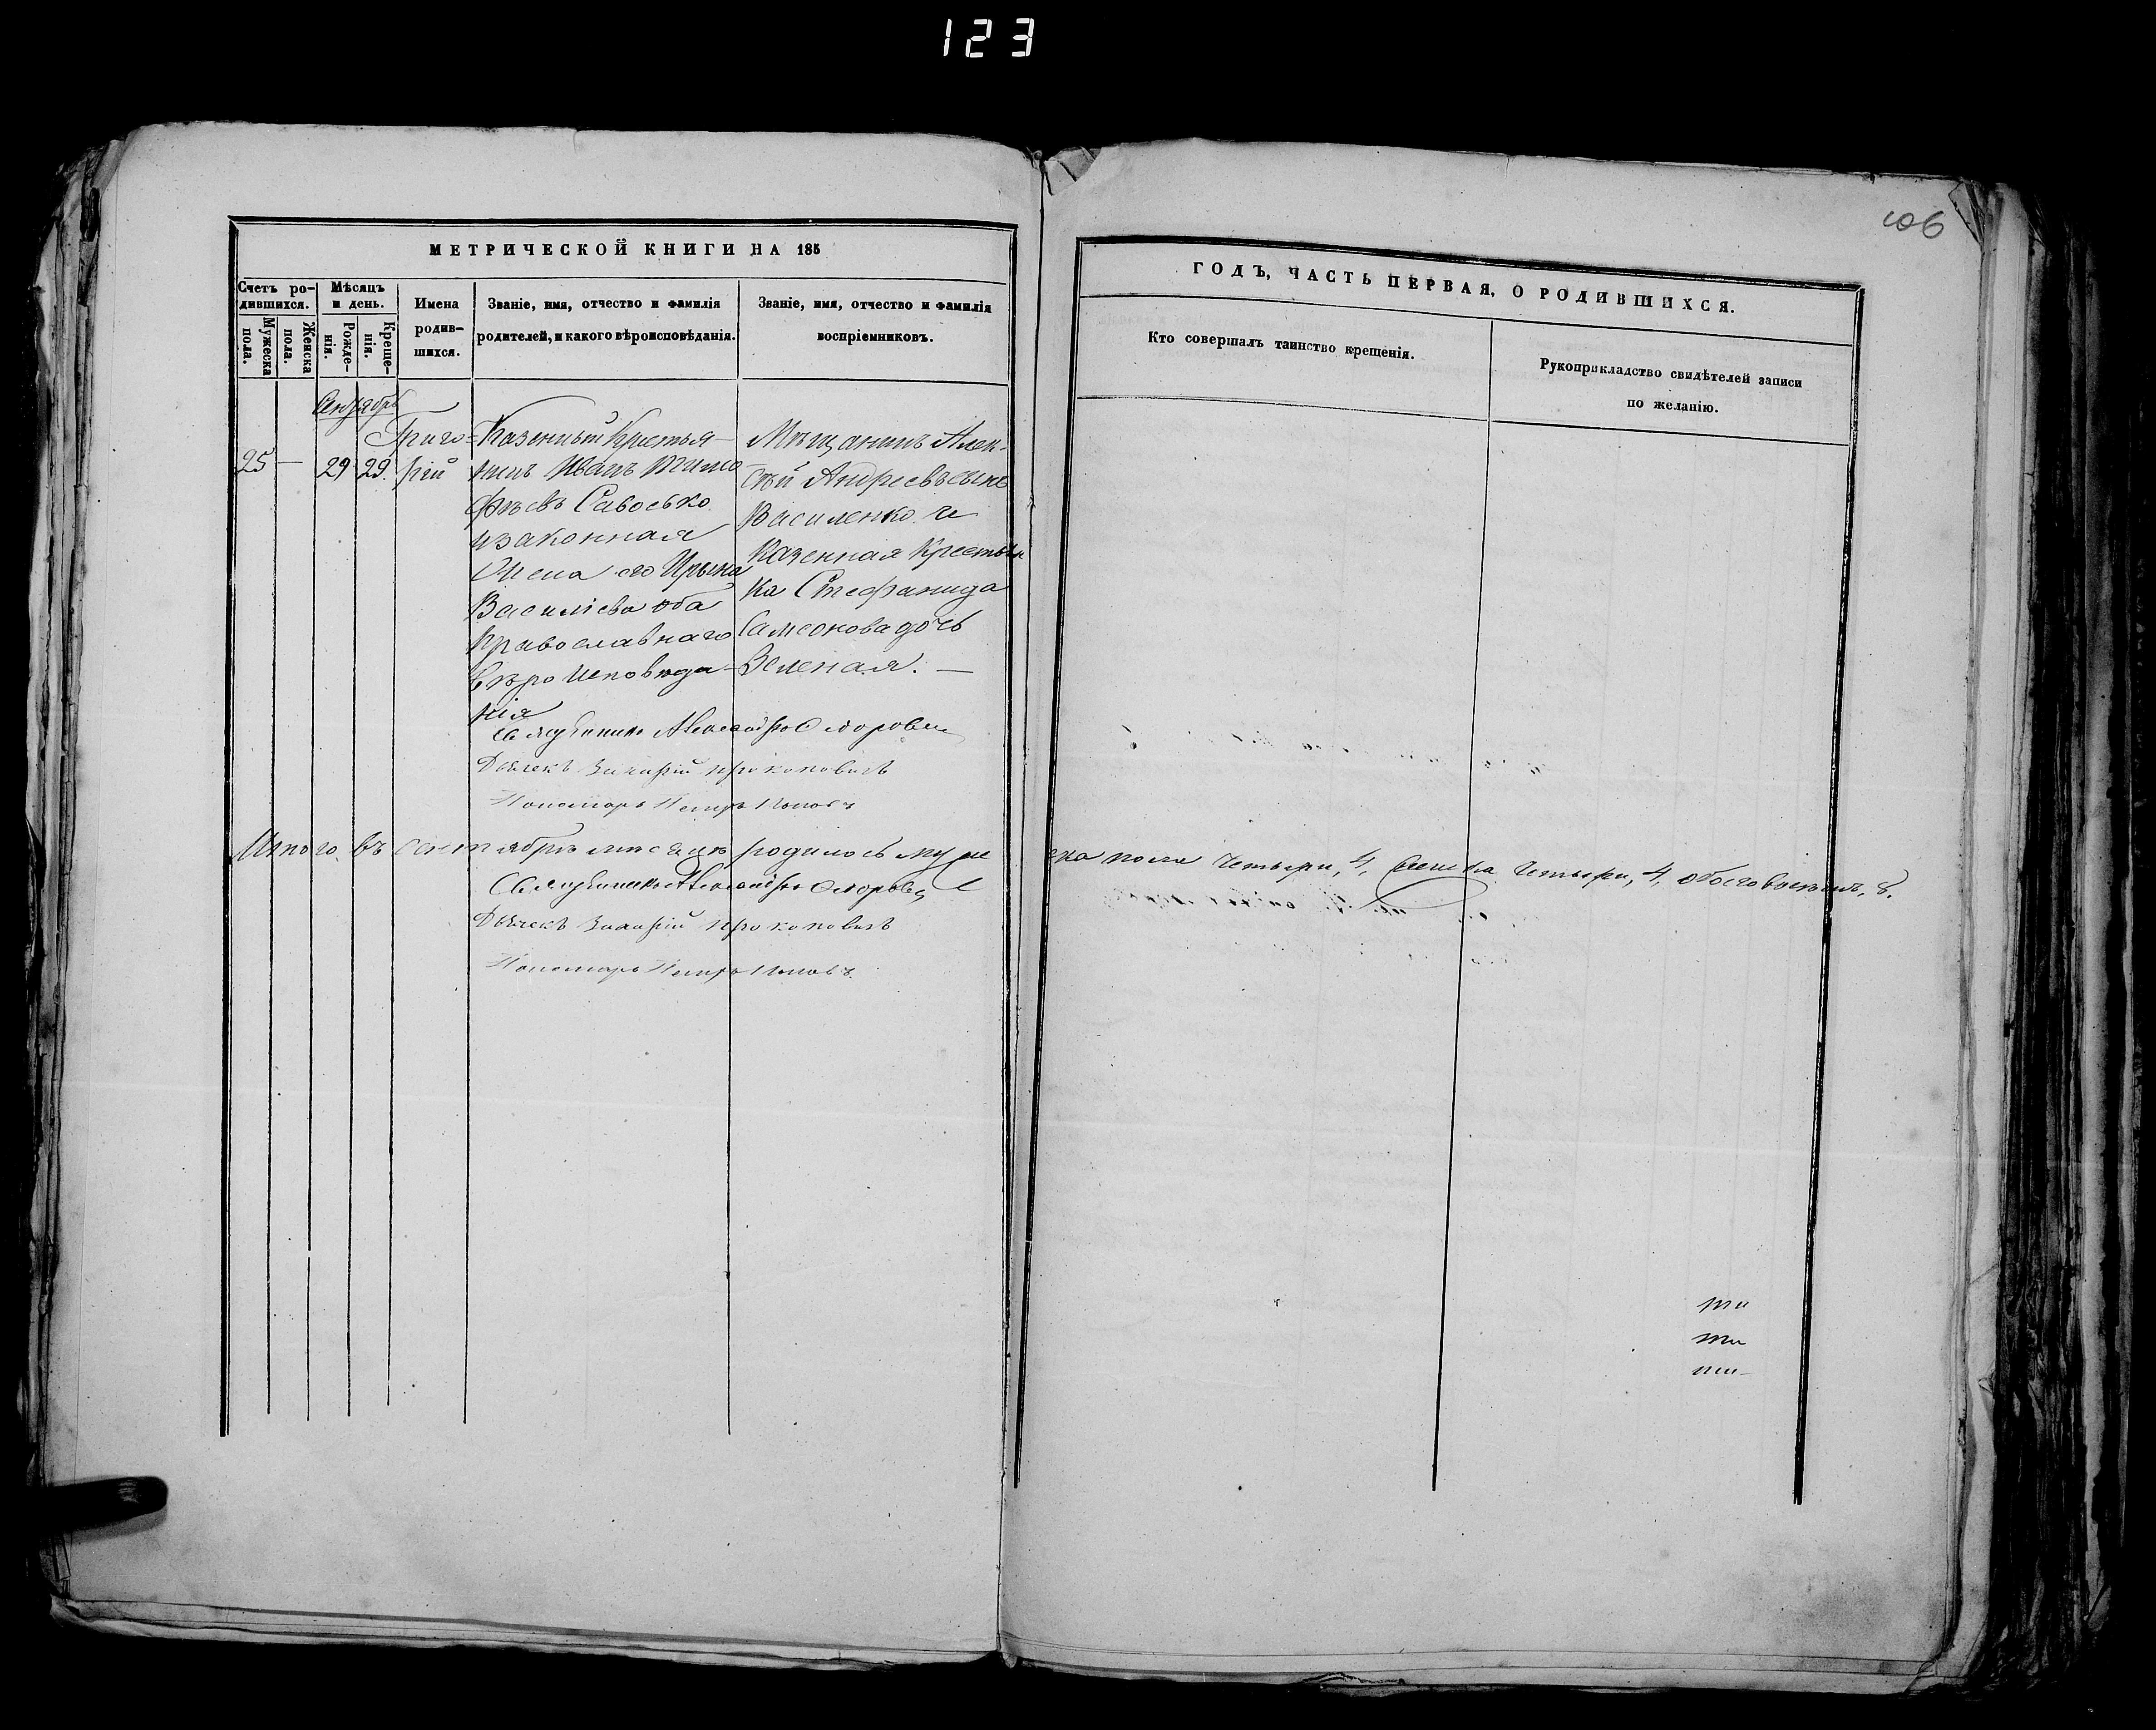 123
106
МЕТРИЧЕСКОЙ КНИГИ НА 185
ГОДЪ, ЧАСТЬ ПЕРВАЯ, О РОДИВШИХСЯ.
Счетъ ро-
дившихся.
Мужеска
пола.
Женска
пола.
Мѣсяцъ
и день.
Рожде-
нія.
Креще-
нія.
Имена
родив-
шихся.
Званіе, имя, отчество и фамилія
родителей, и какого вѣроисповѣданія.
Званіе, имя, отчество и фамилія
воспріемниковъ.
Кто совершалъ таинство крещенія.
Рукоприкладство свидѣтелей записи
по желанію.
Сентябрь
25 — 29 29.
Григо=
рій
Казенный Крестья-
нинъ Иванъ Тимо
фѣевъ Савосько
изаконная
Жена его Ирына
Василіева оба
Православнаго
Вѣро Исповѣда-
нія
Мѣщанинъ Алек-
сѣй Андреевъ сынъ
Василенко и
Казенная Крестьян
ка Стефанида
Самсонова дочь
Зеленая. —
Священникъ
Дьячекъ Захарій Прокоповичъ
Пономарь Петръ Поповъ
Итого въ сентябрѣ мѣсяцѣ родилось муже
ска пола Четыри, 4, Женска Четыри, 4, обоего
8.
Священникъ
Дьячекъ Захарій Прокоповичъ
Пономарь Петръ Поповъ